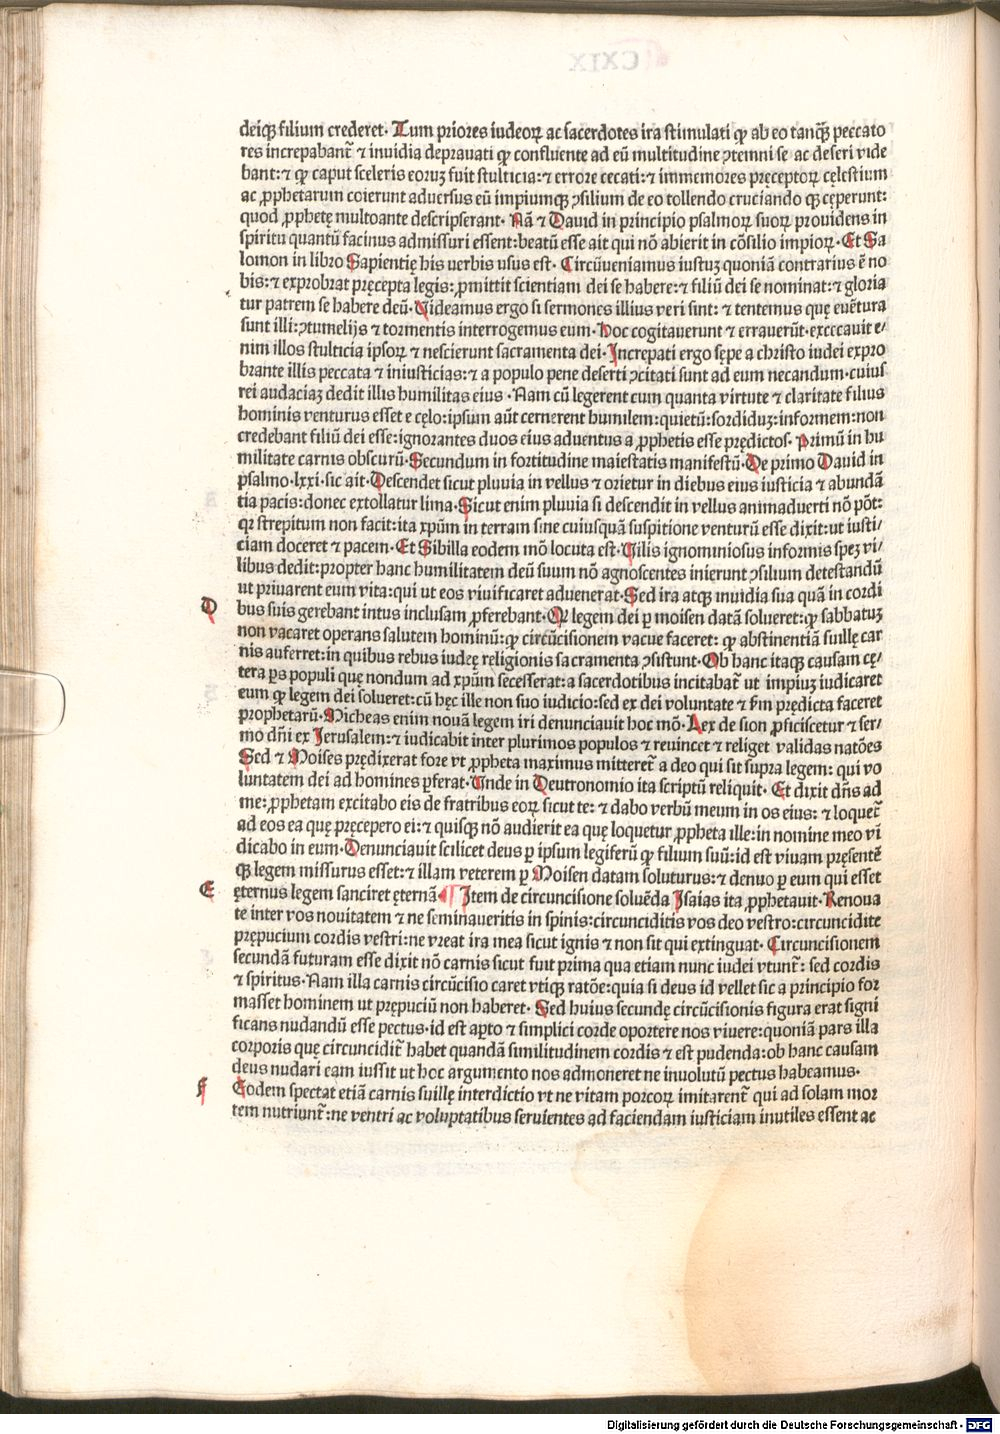 deiqꝫ filium crederet. Tum priores iudeoꝝ ac sacerdotes ira stimulati ꝙ ab eo tanꝗ̃ peccato
res increpabant᷑ ⁊ inuidia deprauati ꝙ confluente ad eũ multitudine ꝯtemni se ac deseri vide
bant:⁊ ꝙ caput sceleris eoruꝫ fuit stulticia:⁊ errore cecati:⁊ immemores pręceptoꝝ cęlestium
ac ꝓphetarum coierunt aduersus eũ impiumqꝫ ꝯsilium de eo tollendo cruciando qꝫ cęperunt:
quod ꝓphetę multoante descripserant. Nã ⁊ Dauid in principio psalmoꝝ suoꝝ prouidens in
spiritu quantũ facinus admissuri essent:beatũ esse ait qui nõ abierit in cõsilio impioꝝ. Et Sa
lomon in libro Sapientię his uerbis usus est. Circũueniamus iustuꝫ quoniã contrarius ẽ no
bis:⁊ exprobrat pręcepta legis:ꝓmittit scientiam dei se habere:⁊ filiũ dei se nominat:⁊ gloria
tur patrem se habere deũ. Videamus ergo si sermones illius veri sint: ⁊ tentemus quę euẽtura
sunt illi:ꝯtumelijs ⁊ tormentis interrogemus eum. Hoc cogitauerunt ⁊ errauerũt.excecauit e/
nim illos stulticia ipsoꝝ ⁊ nescierunt sacramenta dei. Increpati ergo sępe a christo iudei expro
brante illis peccata ⁊ iniusticias:⁊ a populo pene deserti ꝯcitati sunt ad eum necandum.cuius
rei audaciaꝫ dedit illis humilitas eius. Nam cũ legerent cum quanta virtute ⁊ claritate filius
hominis venturus esset e cęlo:ipsum aũt cernerent humilem:quietũ:sordiduꝫ:informem:non
credebant filiũ dei esse:ignorantes duos eius aduentus a ꝓphetis esse prędictos. Primũ in hu
militate carnis obscurũ. Secundum in fortitudine maiestatis manifestũ. De primo Dauid in
psalmo.lxxi.sic ait. Descendet sicut pluuia in vellus ⁊ orietur in diebus eius iusticia ⁊ abundã
tia pacis:donec extollatur luna. Sicut enim pluuia si descendit in vellus animaduerti nõ põt:
qꝛ strepitum non facit:ita xpũm in terram sine cuiusquã suspitione venturũ esse dixit:ut iusti/
ciam doceret ⁊ pacem. Et Sibilla eodem mõ locuta est. Vilis ignominiosus informis speꝫ vi/
libus dedit:propter hanc humilitatem deũ suum nõ agnoscentes inierunt ꝯsilium detestandũ
ut priuarent eum vita:qui ut eos viuificaret aduenerat. Sed ira atqꝫ inuidia sua quã in cordi
D bus suis gerebant intus inclusam ꝓferebant. Qꝛ legem dei ꝑ moisen datã solueret:ꝙ sabbatuꝫ
non vacaret operans salutem hominũ:ꝙ circũcisionem vacue faceret: ꝙ abstinentiã suillę car
nis auferret:in quibus rebus iudeę religionis sacramenta ꝯsistunt. Ob hanc itaqꝫ causam cę/
tera ꝑs populi quę nondum ad xpũm secesserat:a sacerdotibus incitabat᷑ ut impiuꝫ iudicaret
eum ꝙ legem dei solueret:cũ hęc ille non suo iudicio:sed ex dei voluntate ⁊ ẜm prędicta faceret
prophetarũ. Micheas enim nouã legem iri denunciauit hoc mõ. Lex de sion ꝓficiscetur ⁊ ser/
mo dñi ex Jerusalem:⁊ iudicabit inter plurimos populos ⁊ reuincet ⁊ religet validas natões
Sed ⁊ Moises prędixerat fore vt ꝓpheta maximus mitteret᷑ a deo qui sit supra legem: qui vo
luntatem dei ad homines ꝑferat. Unde in Deutronomio ita scriptũ reliquit. Et dixit dñs ad
me:ꝓphetam excitabo eis de fratribus eoꝝ sicut te: ⁊ dabo verbũ meum in os eius: ⁊ loquet᷑
ad eos ea quę pręcepero ei:⁊ quisqꝫ nõ audierit ea quę loquetur ꝓpheta ille:in nomine meo vĩ
dicabo in eum. Denunciauit scilicet deus ꝑ ipsum legiferũ ꝙ filium suũ:id est viuam pręsentẽ
qꝫ legem missurus esset:⁊ illam veterem ꝑ Moisen datam soluturus:⁊ denuo ꝑ eum qui esset
E ęternus legem sanciret ęternã ¶ Item de circuncisione soluẽda Isaias ita ꝓphetauit. Renoua
te inter vos nouitatem ⁊ ne seminaueritis in spinis:circunciditis vos deo vestro:circuncidite
prępucium cordis vestri:ne vreat ira mea sicut ignis ⁊ non sit qui extinguat. Circuncisionem
secundã futuram esse dixit nõ carnis sicut fuit prima qua etiam nunc iudei vtunt᷑: sed cordis
⁊ spiritus. Nam illa carnis circũcisio caret vtiqꝫ ratõe:quia si deus id vellet sic a principio for
masset hominem ut prępuciũ non haberet. Sed huius secundę circũcisionis figura erat signi
ficans nudandũ esse pectus.id est aꝑto ⁊ simplici corde oportere nos viuere:quoniã pars illa
corporis quę circuncidit᷑ habet quandã similitudinem cordis ⁊ est pudenda:ob hanc causam
deus nudari eam iussit ut hoc argumento nos admoneret ne inuolutũ pectus habeamus.
F Eodem spectat etiã carnis suillę interdictio vt ne vitam porcoꝝ imitarent᷑ qui ad solam mor
tem nutriunt᷑:ne ventri ac voluptatibus seruientes ad faciendam iusticiam inutiles essent ac
Digitalisierung gefördert durch die Deutsche Forschungsgemeinschaft - DFG